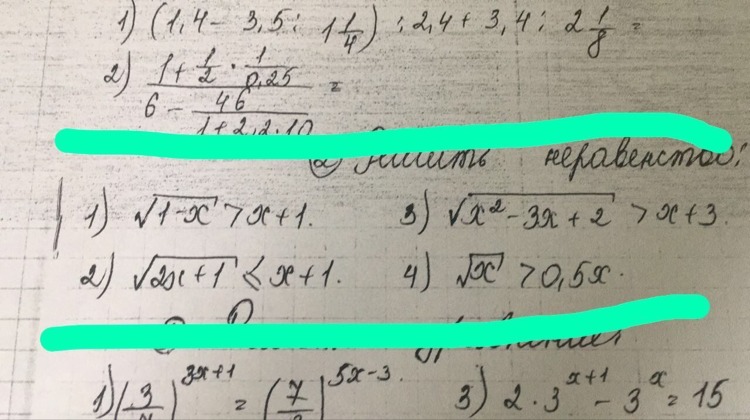 1) (1,4 - 3,5 : 1 1/4) : 2,4 + 3,4 : 2 1/8 =
2) (1 + 1/2 · 1/0,25) / (6 - 46/(1+2,2·10)) =
② Решить неравенство:
1) √(1-x) > x+1.
3) √(x² - 3x + 2) > x+3.
2) √(2x+1) ≤ x+1.
4) √x > 0,5x.
1) (3/7)^(3x+1) = (7/3)^(5x-3).
3) 2·3^(x+1) - 3^x = 15